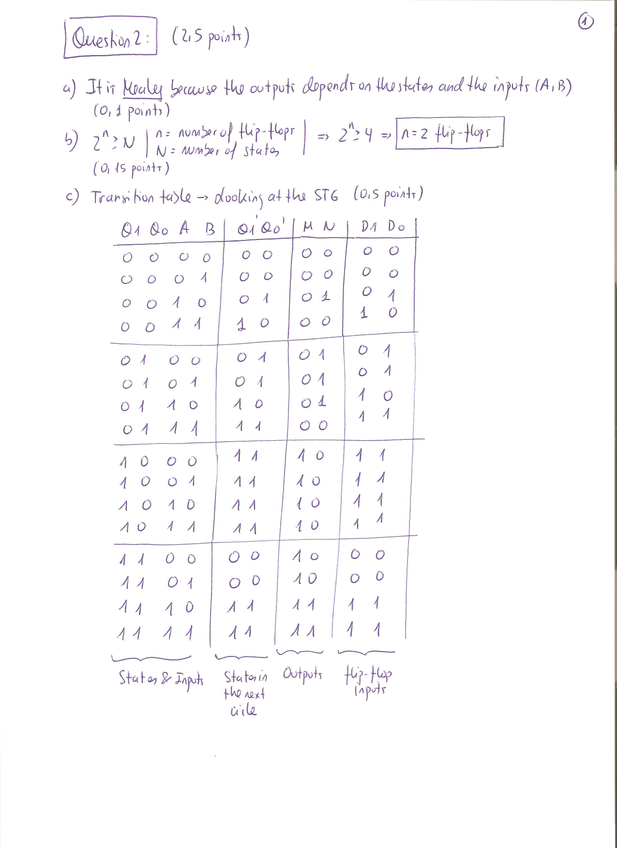 1
Question 2: (2,5 points)
a) It is Mealy because the outputs depends on the states and the inputs (A,B)
(0,1 points)
b) 2^n ≥ N | n = number of flip-flops | => 2^n ≥ 4 => n=2 flip-flops
N = number of states
(0,15 points)
c) Transition table → Looking at the STG (0,5 points)
Q1 Q0 A B | Q1' Q0' | M N | D1 D0
0 0 0 0 | 0 0 | 0 0 | 0 0
0 0 0 1 | 0 0 | 0 0 | 0 0
0 0 1 0 | 0 1 | 0 1 | 0 1
0 0 1 1 | 1 0 | 0 0 | 1 0
0 1 0 0 | 0 1 | 0 1 | 0 1
0 1 0 1 | 0 1 | 0 1 | 0 1
0 1 1 0 | 1 0 | 0 1 | 1 0
0 1 1 1 | 1 1 | 0 0 | 1 1
1 0 0 0 | 1 1 | 1 0 | 1 1
1 0 0 1 | 1 1 | 1 0 | 1 1
1 0 1 0 | 1 1 | 1 0 | 1 1
1 0 1 1 | 1 1 | 1 0 | 1 1
1 1 0 0 | 0 0 | 1 0 | 0 0
1 1 0 1 | 0 0 | 1 0 | 0 0
1 1 1 0 | 1 1 | 1 1 | 1 1
1 1 1 1 | 1 1 | 1 1 | 1 1
States & Inputs
States in
the next
cicle
Outputs
flip-flop
inputs